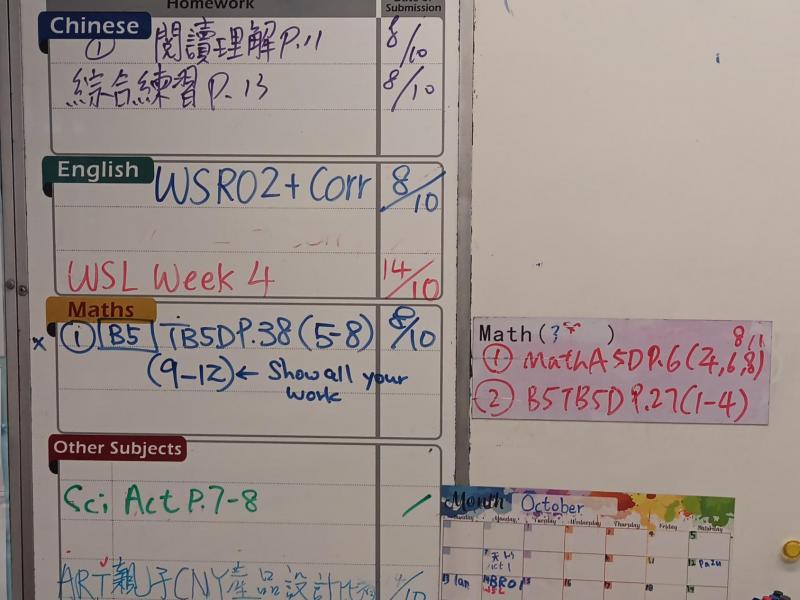 Homework
Submission
Chinese
① 閱讀理解 P.11 8/10
綜合練習 P.13 8/10
English
WSR02 + Corr 8/10
WSL Week 4 14/10
Maths
x ① B5 TB5D P.38 (5-8) 8/10
(9-12) ← Show all your
work
Math ( )
① Math A 5D P.6 (2,4,6,8)
② B5 TB5D P.27 (1-4)
Other Subjects
Sci Act P.7-8
Month October
Sunday Monday Tuesday Wednesday Thursday Friday Saturday
5
12
13 Ian 14 BR01 15 16 17 18
ART 親子CNY產品設計